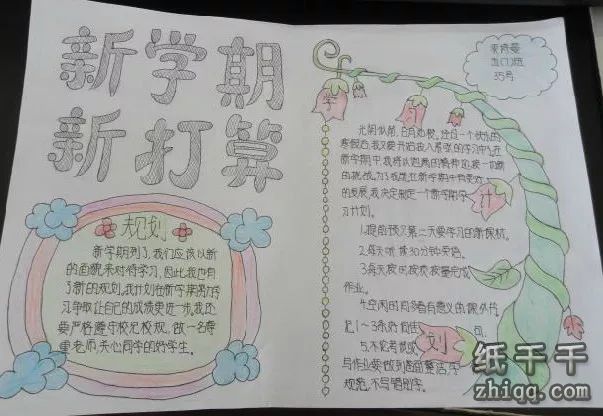 新学期
新打算
规划
新学期到了,我们应该以新
的面貌来对待学习,因此,我也有
了新的规划。我计划在新学期努力学
习,争取让自己的成绩更进一步。我还
要严格遵守校纪校规,做一名尊
重老师,关心同学的好学生。
五(1)班
35号
学习计划
光阴似箭,日月如梭,经过一个快乐的
寒假后,我又要开始投入紧张的学习中了。在
新学期中,我将以饱满的精神迎接一切新
的挑战。为了我能在新学期中有更大
的发展,我决定制定一个新学期学
习计划。
1.提前预习第二天要学习的新课材。
2.每天听、读30分钟英语。
3.每天按时按质按量完成
作业。
4.空闲时间多看有意义的课外书,
记1~3条好词佳句。
5.不论考试或
写作业要做到卷面整洁,字
规范,不写错别字。
纸千千
zhiqq.com